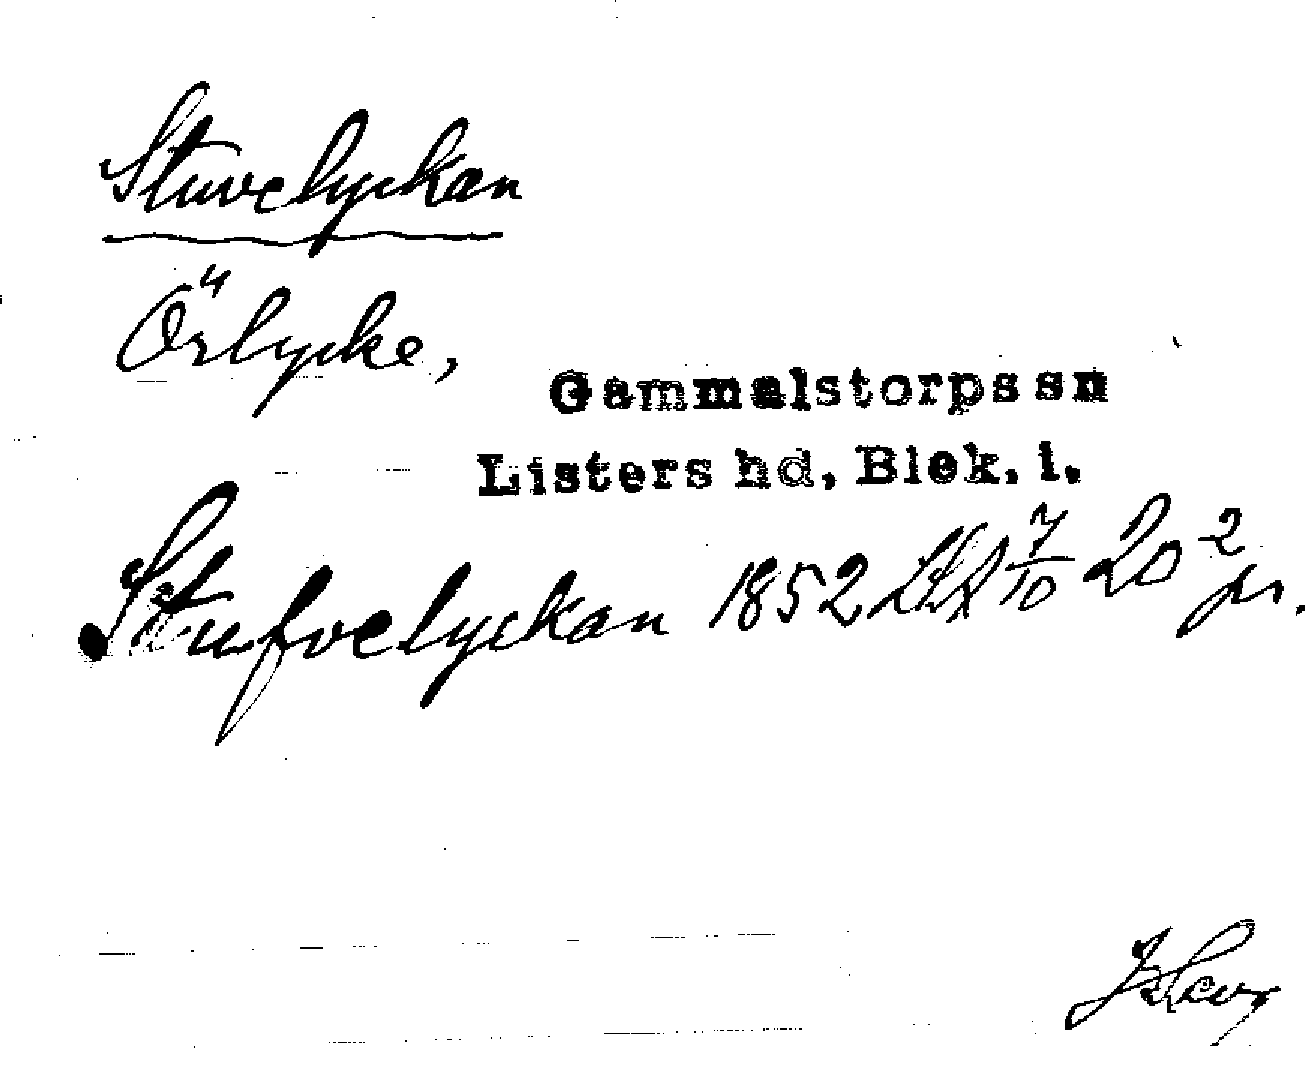 Stuvelyckan
Örlycke,
Gammalstorps sn
Listers hd, Blek. l.
Stufvelyckan 1852 LSA 7/10 20 2 pr.